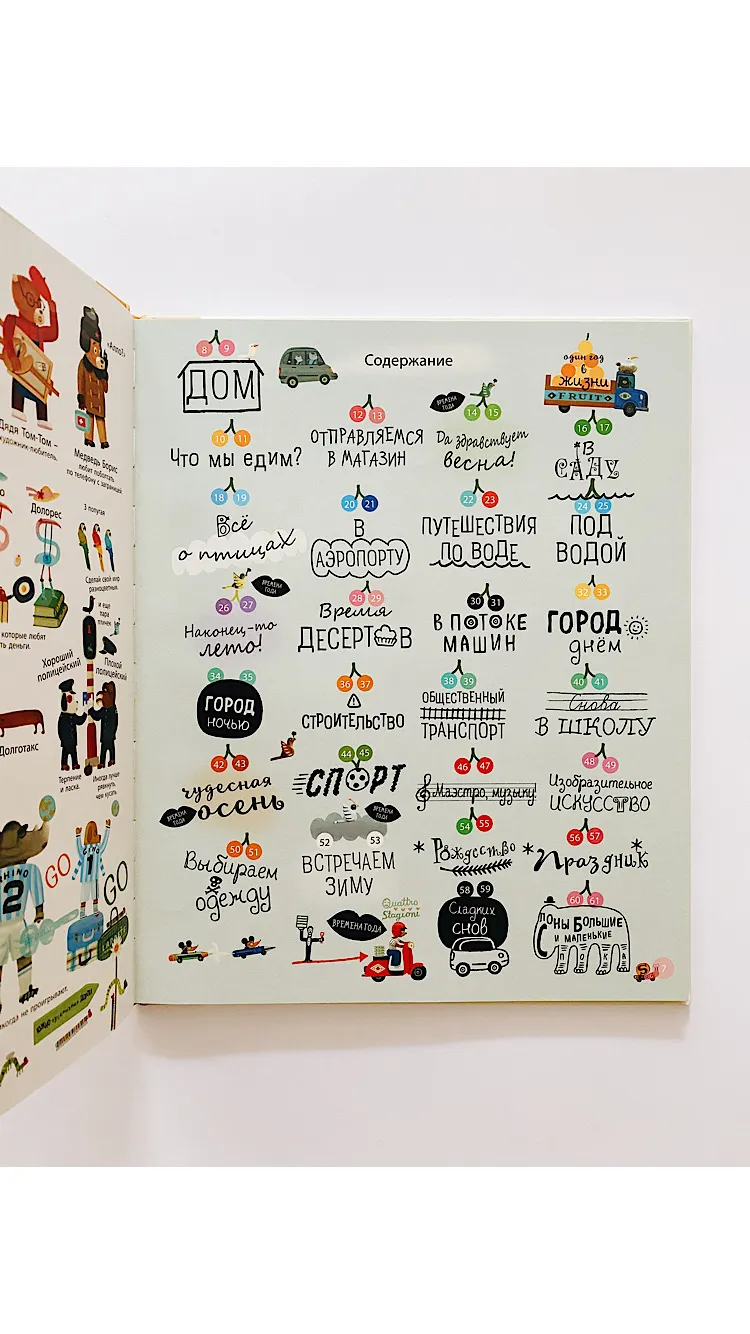 «Алло?»
Дядя Том-Том –
художник-любитель.
Медведь Борис
любит поболтать
по телефону с заграницей
Долорес
3 попугая
Сделай свой мир
разноцветным.
и еще
пара
птичек
которые любят
деньги.
Хороший
полицейский
Плохой
полицейский
Долготакс
Терпение
и ласка.
Иногда лучше
рявкнуть,
чем кусать
RHINO
2
1
GO
GO
никогда не проигрывают.
Содержание
8 9
ДОМ
один год
в
жизни
FRUIT
10 11
Что мы едим?
12 13
ОТПРАВЛЯЕМСЯ
В МАГАЗИН
ВРЕМЕНА
ГОДА
14 15
Да здравствует
весна!
16 17
В
САДУ
18 19
Всё
о птицах
20 21
В
АЭРОПОРТУ
22 23
ПУТЕШЕСТВИЯ
ПО ВОДЕ
24 25
ПОД
ВОДОЙ
ВРЕМЕНА
ГОДА
26 27
Наконец-то
лето!
28 29
Время
ДЕСЕРТОВ
30 31
В ПОТОКЕ
МАШИН
32 33
ГОРОД
днём
34 35
ГОРОД
НОЧЬЮ
36 37
СТРОИТЕЛЬСТВО
38 39
ОБЩЕСТВЕННЫЙ
ТРАНСПОРТ
40 41
Снова
В ШКОЛУ
42 43
чудесная
осень
ВРЕМЕНА
ГОДА
44 45
СПОРТ
46 47
Маэстро, музыку!
48 49
Изобразительное
ИСКУССТВО
50 51
Выбираем
одежду
ВРЕМЕНА
ГОДА
52 53
ВСТРЕЧАЕМ
ЗИМУ
54 55
Рождество
56 57
Праздник
ВРЕМЕНА ГОДА
Quattro
Stagioni
58 59
Сладких
снов
60 61
Слоны Большие
и маленькие
ПОКА
7